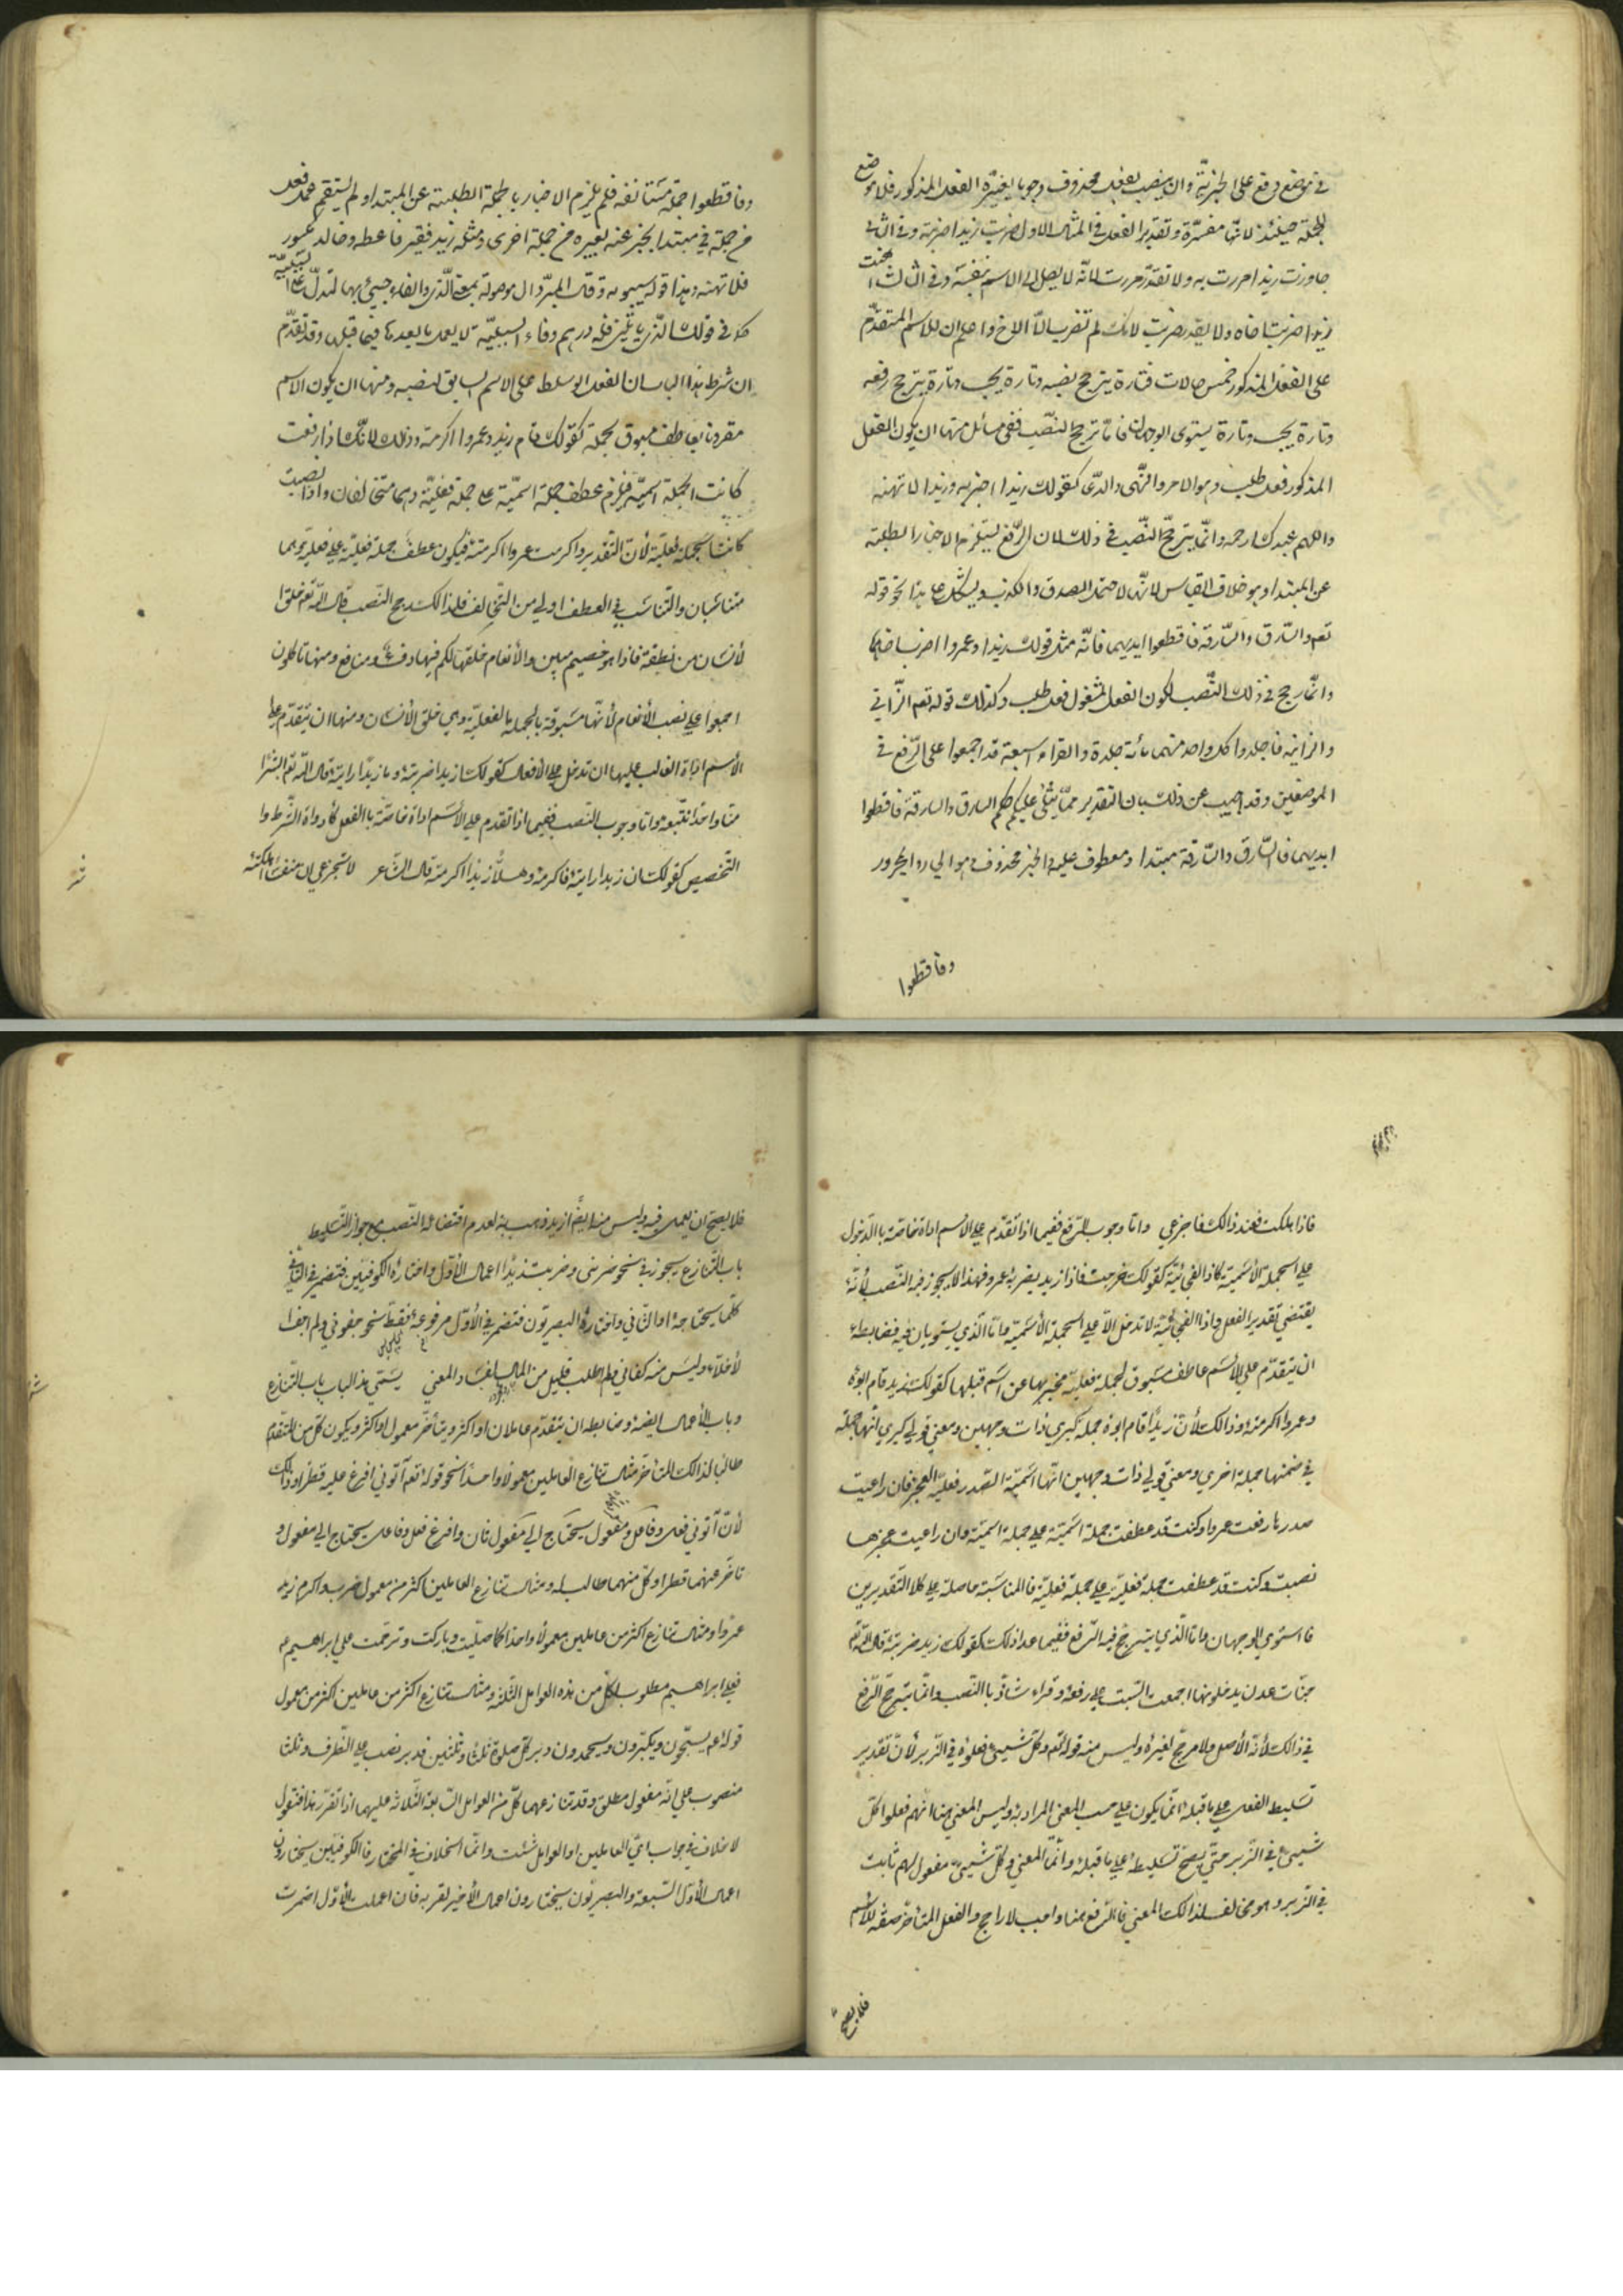 في موضع رفع على الخبرية وان ينصب بفعل محذوف وجوبا يفسره الفعل المذكور فلا موضع
للجملة حينئذ لانها مفسرة وتقدير الفعل في المثال الاول ضربت زيدا ضربته وفي الثاني
جاوزت زيدا مررت به ولا تقدر مررت لانه لا يصل الى الاسم بنفسه وفي الثالث اهنت
زيدا ضربت اخاه ولا يقدر ضربت لانك لم تضرب الا الاخ واعلم ان للاسم المتقدم
على الفعل المذكور خمس حالات فتارة يترجح نصبه وتارة يجب وتارة يترجح رفعه
وتارة يجب وتارة يستوى الوجهان فاما ترجح النصب ففي مسائل منها ان يكون الفعل
المذكور فعل طلب وهو الامر والنهى والدعا كقولك زيدا اضربه وزيدا لا تهنه
واللهم عبدك ارحمه وانما يترجح النصب في ذلك لان الرفع يستلزم الاخبار بالطلبية
عن المبتدا وهو خلاف القياس لانها لا تحتمل الصدق والكذب ويشكل على هذا نحو قوله
تعم والسارق والسارقة فاقطعوا ايديهما فانه مثل قولك زيدا وعمروا اضرب اخاهما
وانما رجح في ذلك النصب لكون الفعل المشغول فعل طلب وكذلك قوله تعم الزانية
والزاني فاجلدوا كل واحد منهما مائة جلدة والقراء السبعة قد اجمعوا على الرفع في
الموضعين وقد اجيب عن ذلك بان التقدير مما يتلى عليكم حكم السارق والسارقة فاقطعوا
ايديهما فالسارق والسارقة مبتدا ومعطوف عليه والخبر محذوف وهو الجار والمجرور
وفاقطعوا
وفاقطعوا جملة مستانفة فلم يلزم الاخبار بالجملة الطلبية عن المبتدا ولم يستقم عمل فعل
من جملة في مبتدا يخبر عنه بغيره من جملة اخرى ومثله زيد فقير فاعطه وخالد مكسور
فلا تهنه وهذا قول سيبويه وقال المبرد ال موصولة بمعنى الذي والفاء جيئ بها لتدل على السببية
كما في قولك الذي ياتيني فله درهم وفاء السببية لا يعمل ما بعدها فيما قبلها وقد تقدم
ان شرط هذا الباب ان الفعل لو سلط على الاسم السابق لنصبه ومنها ان يكون الاسم
مقرونا بعاطف مسبوق بجملة كقولك قام زيد وعمروا اكرمته وذلك لانك اذا رفعت
كانت الجملة اسمية فيلزم عطف جملة اسمية على جملة فعلية وهما متخالفان واذا نصبت
كانت الجملة فعلية لأن التقدير واكرمت عمروا اكرمته فيكون عطف جملة فعلية على فعلية وهما
متناسبان والتناسب في العطف اولى من التخالف فلذالك رجح النصب قال الله تعم خلق ا
لأنسان من نطفة فاذا هو خصيم مبين والأنعام خلقها لكم فيها دفء ومنافع ومنها تاكلون
اجمعوا على نصب الأنعام لأنها مسبوقة بالجملة الفعلية وهي خلق الأنسان ومنها ان يتقدم على
الأسم اداة الغالب عليها ان تدخل على الأفعال كقولك ازيدا ضربته وما زيدا رايته قال الله تعم ابشرا
منا واحدا نتبعه واما وجوب النصب ففيما اذا تقدم على الأسم اداة خاصة بالفعل كأدوات الشرط وا
التخصيص كقولك ان زيدا رايته فاكرمه وهلا زيدا اكرمته قال الشاعر لا تجزعي ان منفسا اهلكته
فاذا هلكت فعند ذالك فاجزعي واما وجوب الرفع ففيما اذا تقدم على الاسم اداة خاصة بالدخول
على الجملة الأسمية كاذا الفجائية كقولك خرجت فاذا زيد يضربه عمرو فهذا لا يجوز فيه النصب لأنه
يقتضي تقدير الفعل واذا الفجائية لا تدخل الا على الجملة الأسمية واما الذي يستويان فيه فضابطه
ان يتقدم على الاسم عاطف مسبوق بجملة فعلية مخبر بها عن اسم قبلها كقولك زيد قام ابوه
وعمروا اكرمته وذالك لأن زيد قام ابوه جملة كبرى ذات وجهين ومعنى قولي كبرى انها جملة
في ضمنها جملة اخرى ومعنى قولي ذات وجهين انها اسمية الصدر فعلية العجز فان راعيت
صدرها رفعت عمروا وكنت قد عطفت جملة اسمية على جملة اسمية وان راعيت عجزها
نصبت وكنت قد عطفت جملة فعلية على جملة فعلية فالمناسبة حاصلة على كلا التقديرين
فاستوى الوجهان واما الذي يترجح فيه الرفع ففيما عدا ذلك كقولك زيد ضربته قال الله تعم
جنات عدن يدخلونها اجمعت السبعة على رفعه وقراء شاذ بالنصب وانما يترجح الرفع
في ذالك لأنه الأصل ولا مرجح لغيره وليس منه قوله تعم وكل شيئ فعلوه في الزبر لأن تقدير
تسليط الفعل على ما قبله انما يكون على حسب المعنى المراد به وليس المعنى هنا انهم فعلوا كل
شيئ في الزبر حتى يصح تسليطه على ما قبله وانما المعنى وكل شيئ مفعول لهم ثابت
في الزبر وهو مخالف لذالك المعنى فالرفع هنا واجب لا راجح والفعل المتاخر صفة للأسم
فلا يصح
فلا يصح ان يعمل فيه وليس منه ايضا ازيد ذهب به لعدم اقتضائه النصب مع جواز التسليط
باب التنازع يجوز في نحو ضربني وضربت زيدا اعمال الأول واختاره الكوفيين فتضمر في الثاني
كلما يحتاجه او الثاني واختاره البصريون فتضمر في الأول مرفوعه فقط نحو جفوني ولم اجف ا
لأخلاء وليس منه كفاني ولم اطلب قليل من المال لفساد المعنى يسمى هذا الباب باب التنازع
وباب الأعمال ايضا وضابطه ان يتقدم عاملان او اكثر ويتأخر معمول او اكثر ويكون كل من المتقدم
طالبا لذالك المتأخر مثال تنازع العاملين معمولا واحدا نحو قوله تعم آتوني افرغ عليه قطرا وذالك
لأن آتوني فعل وفاعل ومفعول يحتاج الى مفعول ثان وافرغ فعل وفاعل يحتاج الى مفعول و
تاخر عنهما قطرا وكل منهما طالب له ومثال تنازع العاملين اكثر من معمول ضرب واكرم زيد
عمروا ومثال تنازع اكثر من عاملين معمولا واحدا كما صليت وباركت وترحمت على ابراهيم
فعلى ابراهيم مطلوب لكل من هذه العوامل الثلثة ومثال تنازع اكثر من عاملين اكثر من معمول
قوله عم يسبحون ويكبرون ويحمدون دبر كل صلوة ثلثا وثلثين فدبر نصب على الظرف وثلثا
منصوب على انه مفعول مطلق وقد تنازعهما كل من العوامل الثلاثة عليهما اذا تقرر هذا فنقول
لا خلاف في جواب اي العاملين او العوامل شئت وانما الخلاف في المختار فالكوفيين يختارون
اعمال الأول لسبقه والبصريون يختارون اعمال الأخير لقربه فان اعملت الأول اضمرت